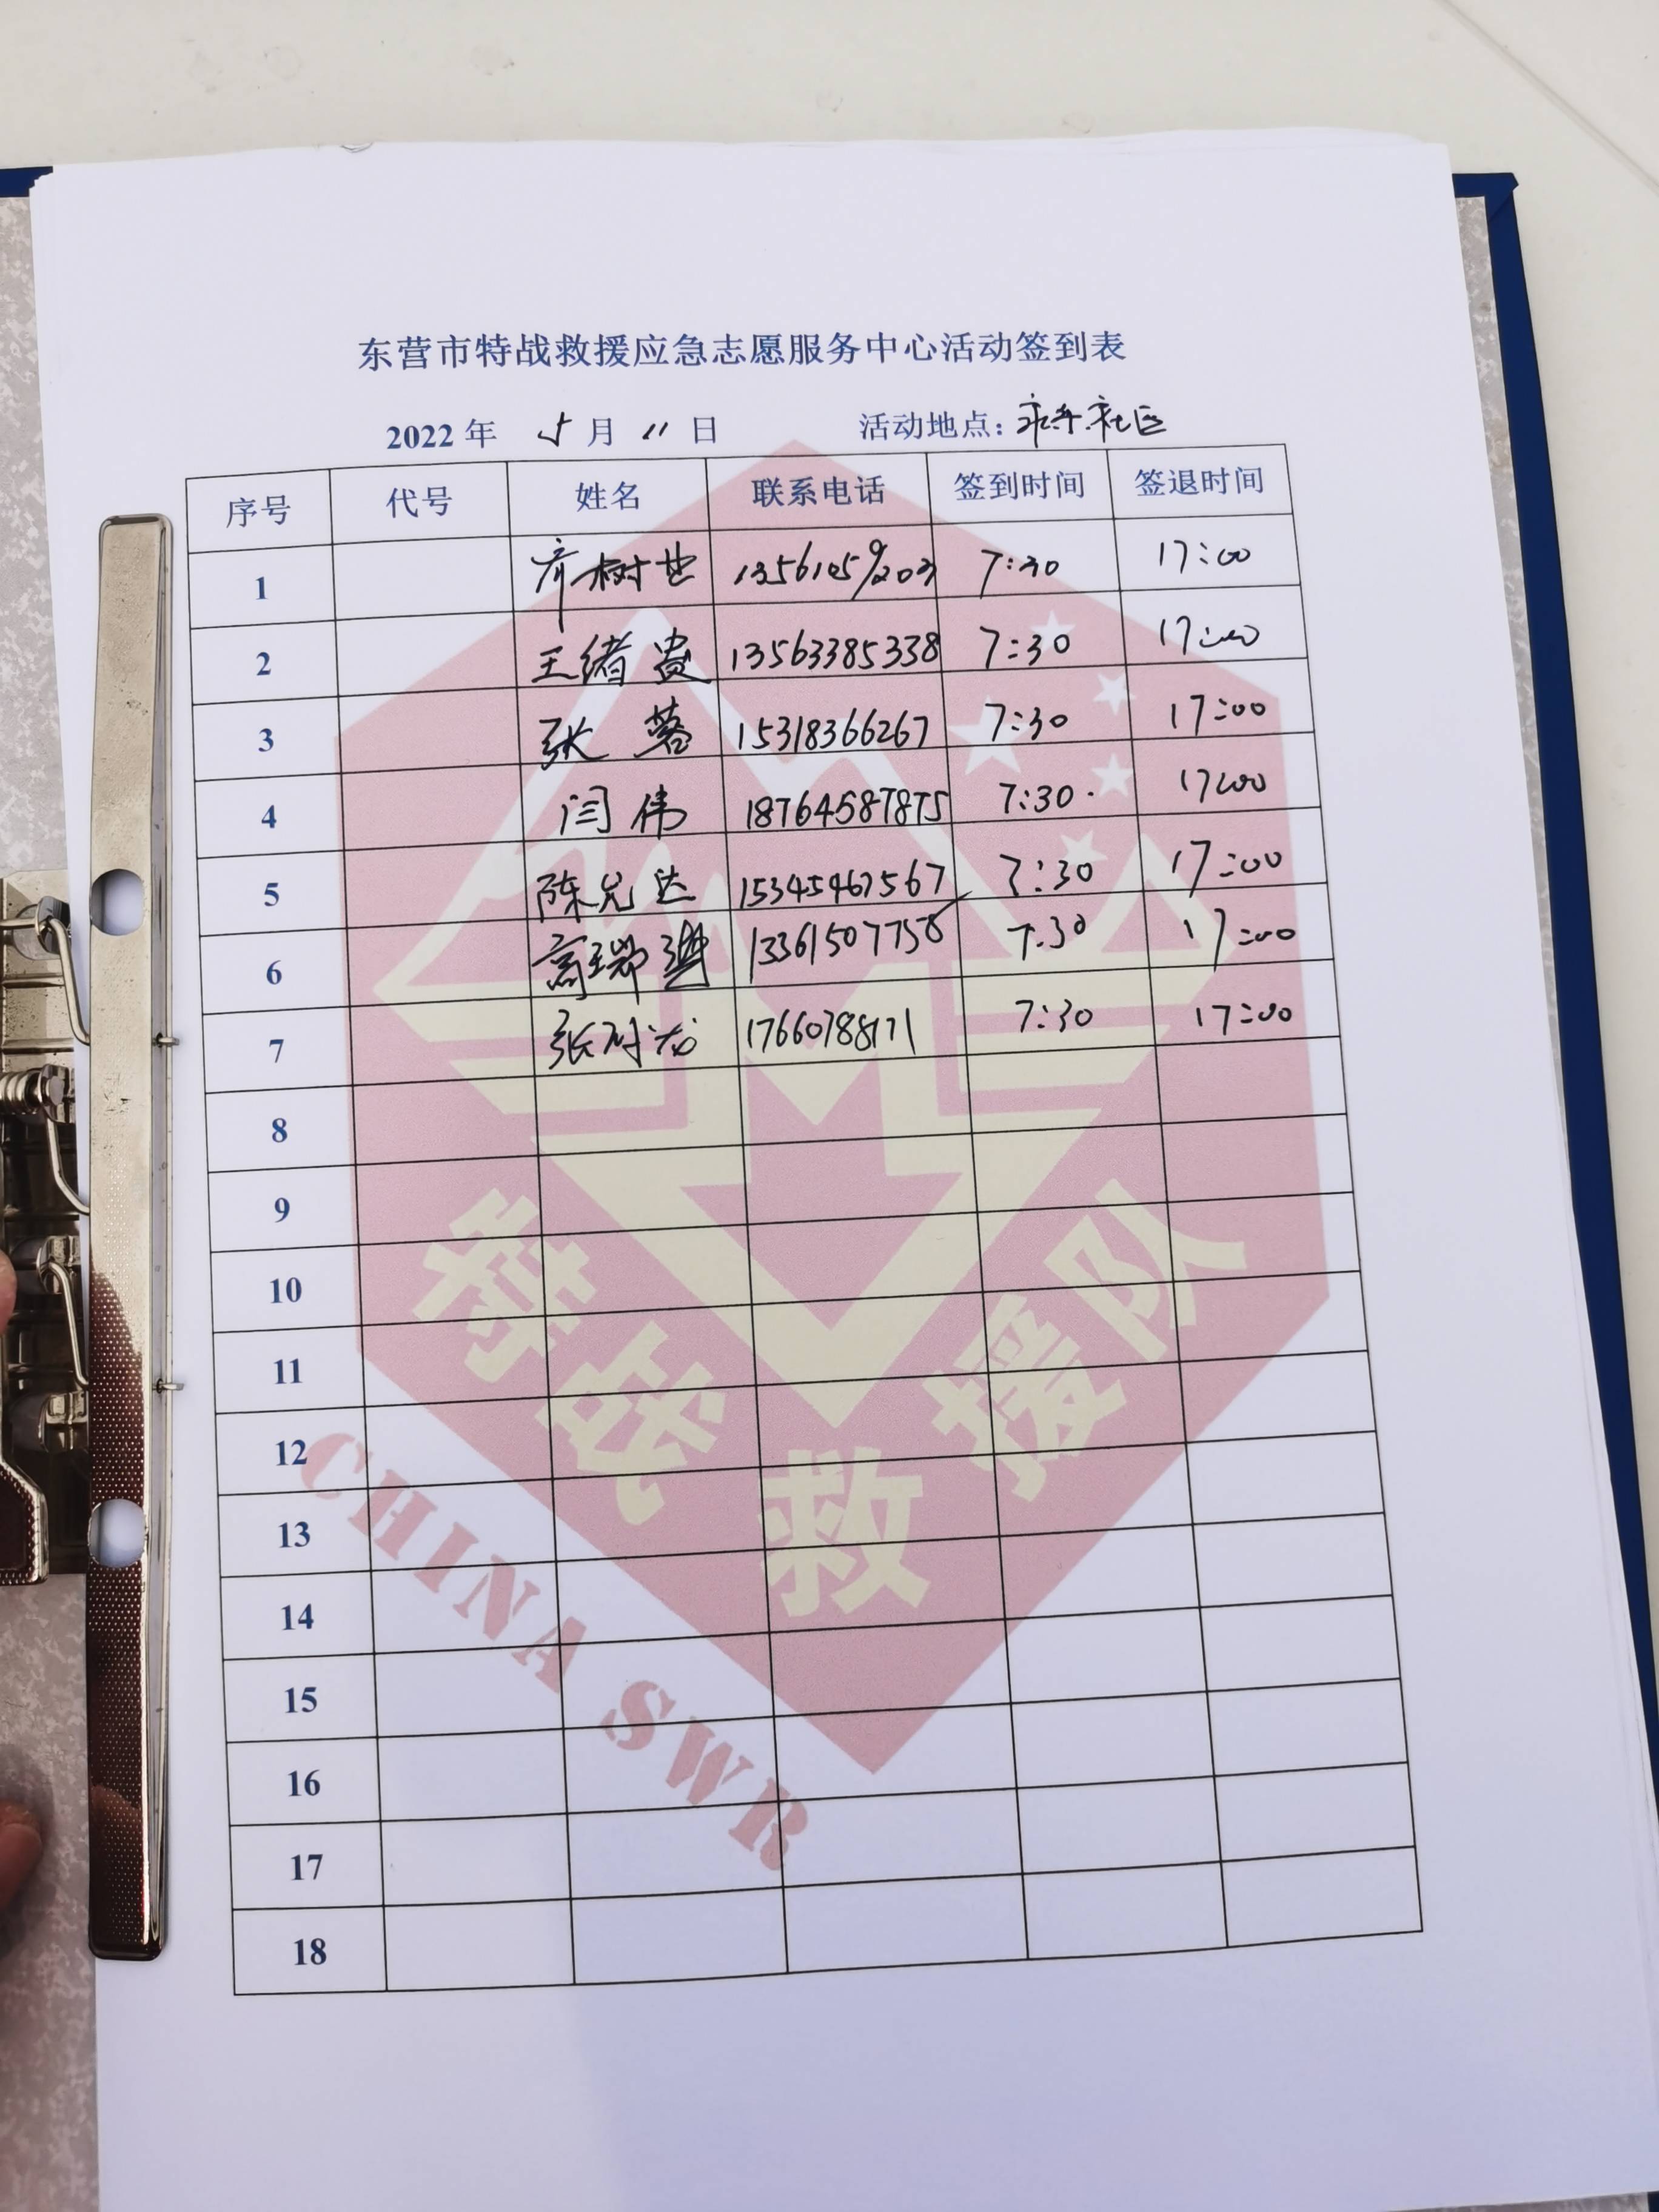 东营市特战救援应急志愿服务中心活动签到表
2022 年 5 月 11 日 活动地点: 社区
序号 代号 姓名 联系电话 签到时间 签退时间
1 树 7:30 17:00
2 王绪贵 13563385338 7:30 17:00
3 张蓉 15318366267 7:30 17:00
4 闫伟 18764587875 7:30 17:00
5 陈允达 15345467567 7:30 17:00
6 高瑞 13361507758 7:30 17:00
7 张 17660788171 7:30 17:00
8
9
10
11
12
13
14
15
16
17
18
特战救援队
CHINA SWR